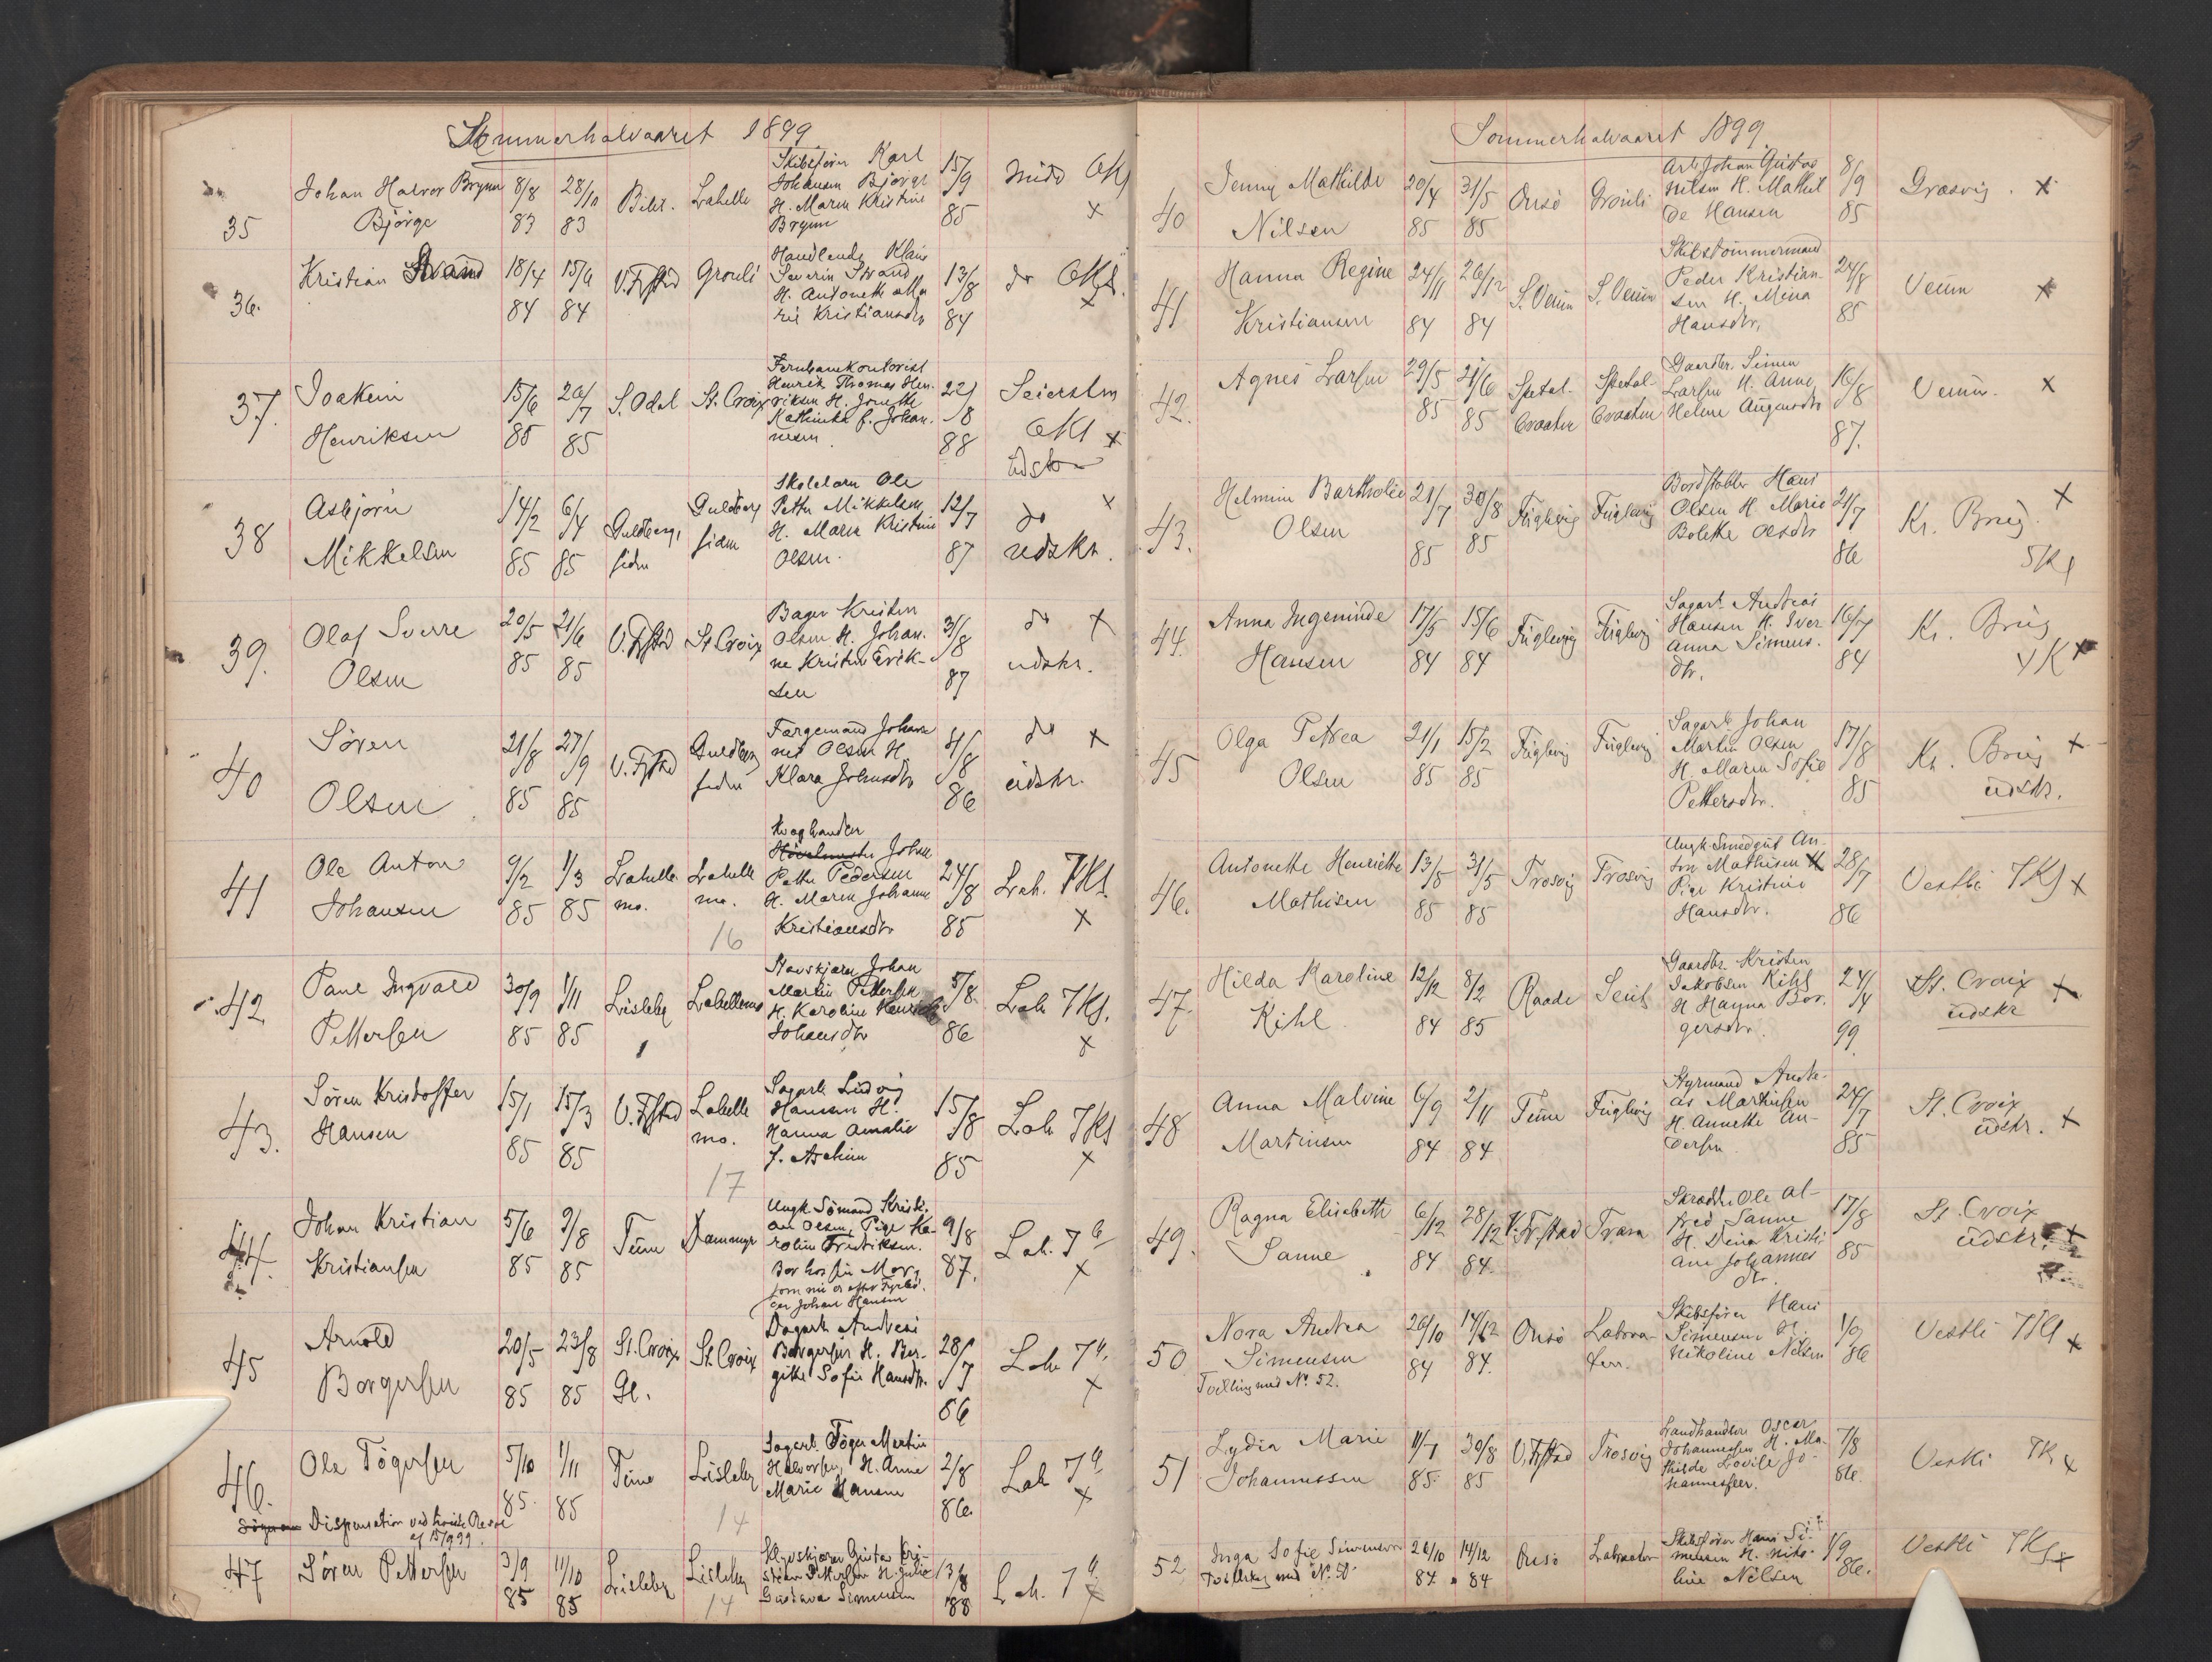 Sommerhalvaaret 1899
35
Johan Halvor Brynn
Björge
8/8
83
28/10
83
Labelle
Skibsfører Karl
Johansen Björge
H. Maren Kristine
Brynn
15/9
85
Midd
x
36.
Kristian Strand
18/4
84
15/6
84
V. Frstad
Grouli
Handlende Klaus
Severin Strand
H. Antonette Ma
rie Kristiansdtr
13/8
84
do
x
37.
Joakim
Henriksen
15/6
85
26/7
85
S. Odal
St. Croix
Jernbanekontorist
Henrik Thomas Hen-
riksen H. Josette
Kathinka f. Johan-
nesen
22/8
88
Seiersten
x
udskr
38
Asbjørn
Mikkelsen
14/2
85
6/4
85
Guldberg
siden
Guldberg
siden
Skolelærer Ole
Petter Mikkelsen
H. Maren Kristine
Olsen.
12/7
87
do x
udskr.
39.
Olaf Sverre
Olsen
20/5
85
21/6
85
V. Frstad
St Croix
Bager Kristen
Olsen H. Johan-
ne Kristine Erik-
sen
31/8
87
do x
udskr.
40
Søren
Olsen
21/8
85
27/9
85
V. Frstad
Guldberg
siden
Færgemand Johan
nes Olsen H.
Klara Johnsdtr
31/8
86
do x
udskr.
41
Ole Anton
Johansen
9/2
85
1/3
85
Labelle
mo.
Labelle
mo.
16
Kvæghandler
Johan
Petter Pedersen
H. Maren Johanne
Kristiansdtr
24/8
85
Lab. 7Kl
x
42
Paul Ingvald
Pettersen
30/9
85
1/11
85
Lisleby
Labellemo
Stavskjærer Johan
Martin Pettersen
H. Karoline Henriette
Johansdtr
5/8
86
Lab 7Kl.
x
43.
Søren Kristoffer
Hansen
15/1
85
15/3
85
V. Frstad
Labelle
mo.
17
Sagarb. Ludvig
Hansen H.
Hanna Amalie
f. Aschim
15/8
85
Lab 7Kl
x
44.
Johan Kristian
Kristiansen
5/6
85
9/8
85
Tune
Dammyr
Ungk. Sömand Kristi-
an Olsen, Pige Ka-
roline Fredriksen.
Bor hos sin Mor,
som nu er gift Fyrbö-
ter Johan Hansen
9/8
87.
Lab. 7
x
45
Arnold
Borgersen
20/5
85
23/8
85
St. Croix
Gl.
St. Croix
Dagarb. Andreas
Borgersen H. Ber-
gitte Sofie Hansdtr.
28/7
86
Lab 7
x
46.
Ole Tögersen
5/10
85.
1/11
85
Tune
Lisleby
14
Sagarb. Töger Martin
Halvorsen, H. Anne
Marie Hansen
2/8
86.
Lab 7
x
Dispensation ved
af 15/9 99.
47
Søren Pettersen
3/9
85
11/10
85
Lisleby
Lisleby
14
Gustav Kri-
stian Pettersen H. Julie
Gustava Simensen
13/8
88
Lab. 7
x
Sommerhalvaaret 1899
40
Jenny Mathilde
Nilsen
20/4
85
31/5
85
Onsö
Grouli
Arb. Johan Gustav
Nilsen H. Mathil
de Hansen
8/9
85
Græsvig. x
41
Hanna Regine
Kristiansen
24/11
84
26/12
84
S. Veum
S. Veum
Skibstømmermand
Peder Kristian-
sen H. Mina
Hansdtr.
24/8
85
Veum x
42.
Agnes Larsen
29/5
85
21/6
85
Spetal-
braaten
Spetal-
braaten
Gaardbr. Simen
Larsen H. Anne
Helene Augensdtr
16/8
87.
Veum. x
43.
Helmine Bartholie
Olsen
21/7
85
30/8
85
Fuglevig
Fuglevig
Bordstabler Hans
Olsen H. Marie
Bolette Olsdtr
21/7
86
Kr. Brug. x
5Kl
44.
Anna Ingeminde
Hansen
17/5
84
15/6
84
Fuglevig
Fuglevig
Sagarb. Andreas
Hansen H. Iver-
anna Simens-
dtr.
16/7
84
Kr. Brug
4K x
45
Olga Petrea
Olsen
21/1
85
15/2
85
Fuglevig
Fuglevig
Sagarb. Johan
Martin Olsen
H. Maren Sofie
Pettersdtr.
17/8
85
Kr. Brug x
udskr.
46.
Antonette Henriette
Mathisen
13/5
85
31/5
85
Trosvig
Trosvig
Ungk. Smedgut An-
ton Mathisen
Pige Kristine
Hansdtr.
28/7
86
Vestli 7Kl x
47.
Hilda Karoline
Kihl
12/12
84
8/2
85
Raade
Gaardbr. Kristen
Jakobsen Kihl
H Hagna Bor-
gersdtr.
24/4
99
St. Croix x
udskr
48
Anna Malvine
Martinsen
6/9
84
2/11
84
Tune
Fuglevig
Styrmand Andre-
as Martinsen
H. Annette An-
dersen
24/7
85
St. Croix
udskr. x
49.
Ragna Elisabeth
Sanne
6/12
84
28/12
84.
V. Frstad
Trara
Skrædder Ole Al-
fred Sanne
H. Dina Kristi
ane Johannes
dtr.
17/8
85
St. Croix
udskr. x
50
Nora Andrea
Simensen
Tvilling med No. 52.
26/10
84
14/12
84.
Onsö
Labraa-
ten.
Skibsfører Hans
Simensen H.
Nikoline Nilsen
1/9
86
Vestli 7Kl x
51
Lydia Marie
Johannessen
11/7
85.
30/8
85
V. Frstad
Trosvig
Landhandler Oscar
Johannessen H. Ma-
thilde Lovise Jo-
hannessen.
7/8
86.
Vestli 7K x
52
Inga Sofie Simensen
Tvilling med No. 50.
26/10
84
14/12
84
Onsö
Labraaten
Skibsfører Hans Si-
mensen H. Niko-
line Nilsen
1/9
86.
Vestli 7Kl x